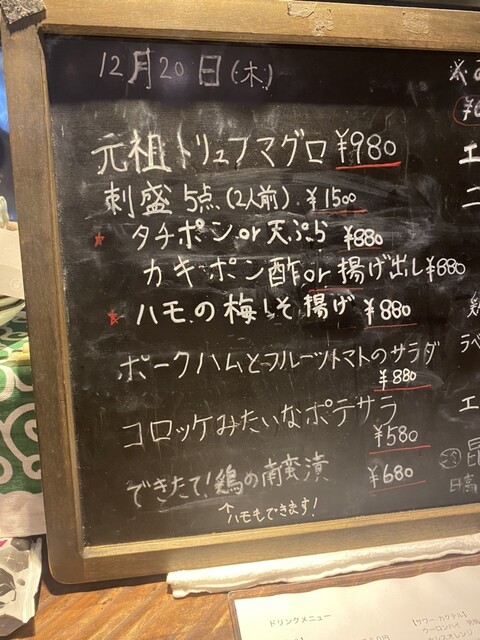 12月20日(木)
元祖トリュフマグロ ¥980
刺盛 5点(2人前) ¥1500
タチポン or 天ぷら ¥880
カキポン酢 or 揚げ出し ¥880
ハモの梅しそ揚げ ¥880
ポークハムとフルーツトマトのサラダ
¥880
コロッケみたいなポテサラ
¥580
できたて!鶏の南蛮漬 ¥680
↑ハモもできます!
ドリンクメニュー
【サワー、カクテル】
ウーロンハイ
カシスオレンジ